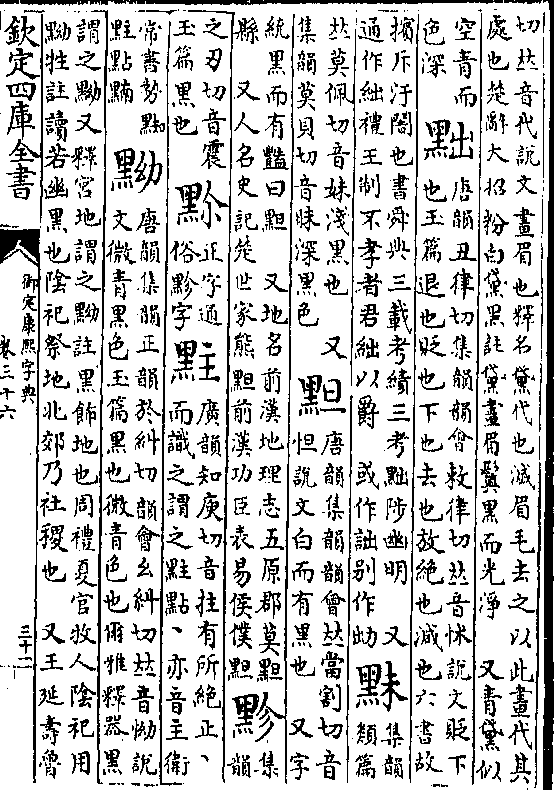 切𠀤音代說文畫眉也釋名黛代也滅眉毛去之以此畫代其
處也楚辭大招粉白黛黑註黛畫眉鬢黑而光淨 又青黛似
空青而
色深
黜
唐韻丑律切集韻韻會敕律切𠀤音怵說文貶下
也玉篇退也貶也下也去也放絶也減也六書故
擯斥汙闇也書舜典三載考績三考黜陟幽明 又
通作絀禮王制不孝者君絀以爵 或作詘别作
䵢
集韻
類篇
𠀤莫佩切音妹淺黑也 又
集韻莫貝切音昧深黑色
䵣
唐韻集韻韻會𠀤當割切音
怛說文白而有黑也 又字
統黑而有豔曰䵣 又地名前漢地理志五原郡莫䵣
縣 又人名史記楚世家熊䵣前漢功臣表易侯僕䵣
集
韻
之刃切音震
玉篇黑也
正字通
俗字
廣韻知庾切音拄有所絶止、
而識之謂之點、亦音主衛
常善勢
點
黝
唐韻集韻正韻於糾切韻會幺糾切𠀤音怮說
文微青黑色玉篇黑也微青色也爾雅釋器黑
謂之黝又釋宮地謂之黝註黑飾地也周禮夏官牧人隂祀用
黝牲註讀若幽黑也隂祀祭地北郊乃社稷也 又王延壽魯
欽定四庫全書
御定康熙字典
卷三十六
三十二